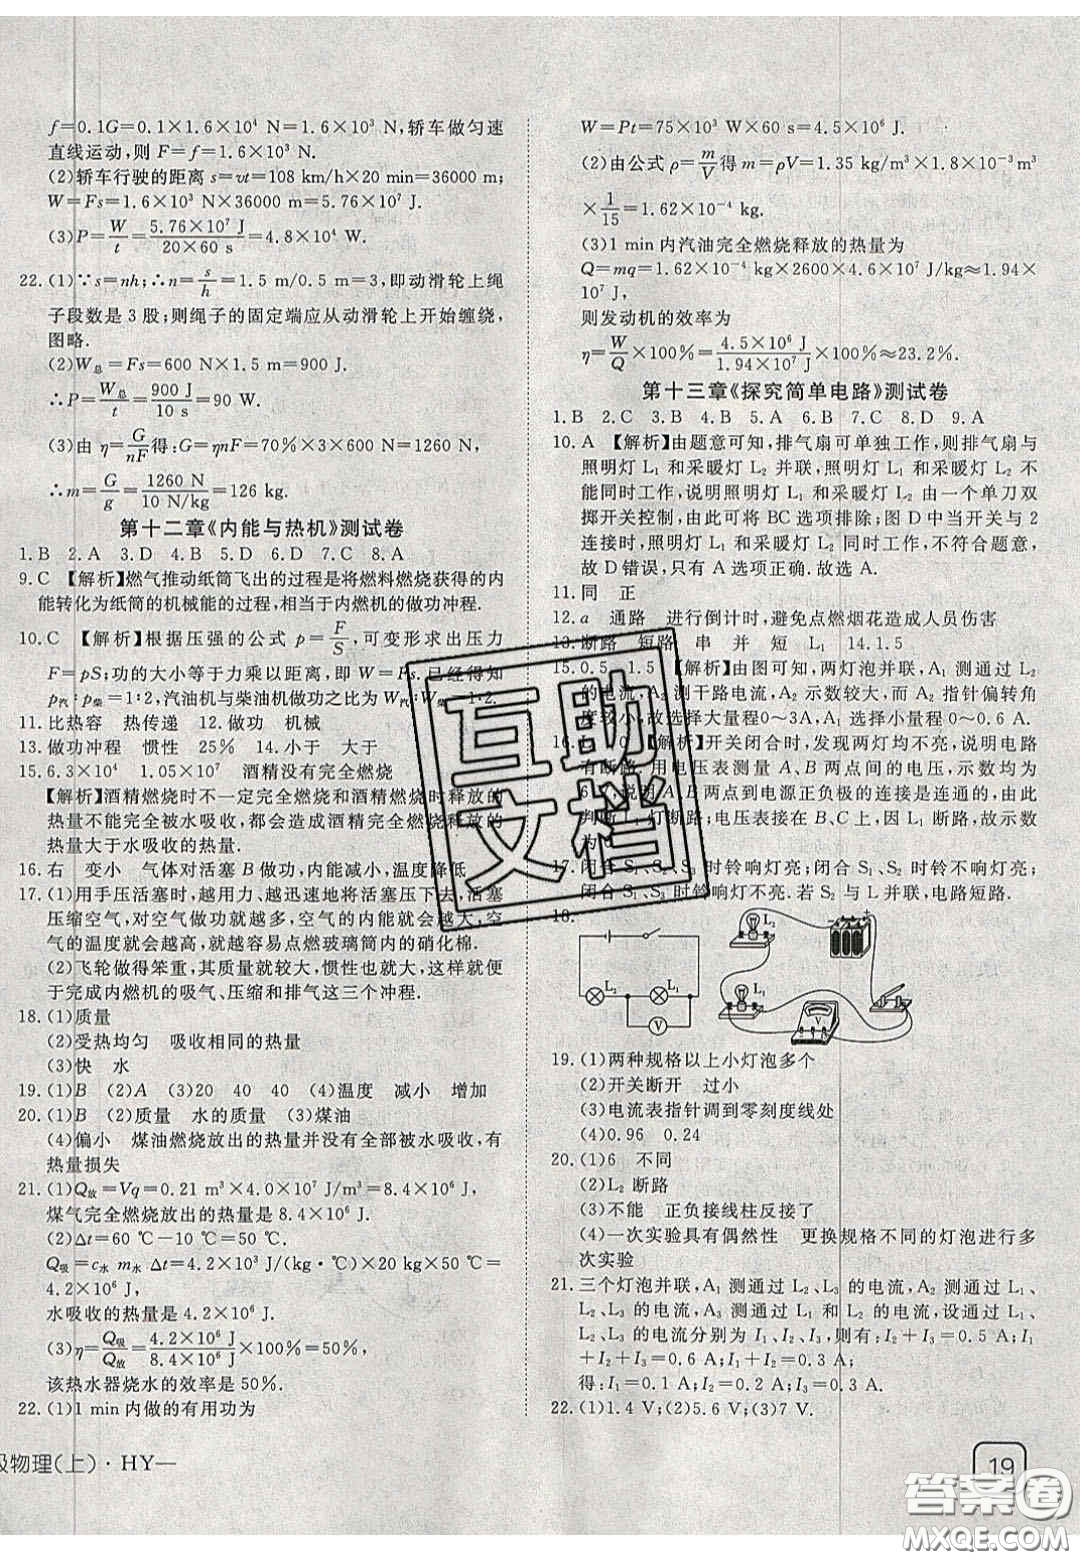 f=0.1G=0.1×1.6×10⁴ N=1.6×10³ N,轿车做匀速
直线运动,则 F=f=1.6×10³ N.
(2)轿车行驶的距离 s=vt=108 km/h×20 min=36000 m;
W=Fs=1.6×10³ N×36000 m=5.76×10⁷ J.
(3)P=W/t=5.76×10⁷ J/20×60 s=4.8×10⁴ W.
22.(1)∵s=nh;∴n=s/h=1.5 m/0.5 m=3,即动滑轮上绳
子段数是 3 股;则绳子的固定端应从动滑轮上开始缠绕,
图略.
(2)W总=Fs=600 N×1.5 m=900 J.
∴P=W总/t=900 J/10 s=90 W.
(3)由 η=G/nF得:G=ηnF=70%×3×600 N=1260 N,
∴m=G/g=1260 N/10 N/kg=126 kg.
第十二章《内能与热机》测试卷
1.B 2.A 3.D 4.B 5.D 6.D 7.C 8.A
9.C 【解析】燃气推动纸筒飞出的过程是将燃料燃烧获得的内
能转化为纸筒的机械能的过程,相当于内燃机的做功冲程.
10.C 【解析】根据压强的公式 p=F/S,可变形求出压力
F=pS;功的大小等于力乘以距离,即 W=Fs,已经得知
p汽:p柴=1:2,汽油机与柴油机做功之比为W汽:W柴=1:2.
11.比热容 热传递 12.做功 机械
13.做功冲程 惯性 25% 14.小于 大于
15.6.3×10⁴ 1.05×10⁷ 酒精没有完全燃烧
【解析】酒精燃烧时不一定完全燃烧和酒精燃烧时释放的
热量不能完全被水吸收,都会造成酒精完全燃烧释放的
热量大于水吸收的热量.
16.右 变小 气体对活塞 B 做功,内能减小,温度降低
17.(1)用手压活塞时,越用力、越迅速地将活塞压下去,活塞
压缩空气,对空气做功就越多,空气的内能就会越大,空
气的温度就会越高,就越容易点燃玻璃筒内的硝化棉.
(2)飞轮做得笨重,其质量就较大,惯性也就较大,这样便
于完成内燃机的吸气、压缩和排气这三个冲程.
18.(1)质量
(2)受热均匀 吸收相同的热量
(3)快 水
19.(1)B (2)A (3)20 40 40 (4)温度 减小 增加
20.(1)B (2)质量 水的质量 (3)煤油
(4)偏小 煤油燃烧放出的热量并没有全部被水吸收,有
热量损失
21.(1)Q放=Vq=0.21 m³×4.0×10⁷ J/m³=8.4×10⁶ J,
煤气完全燃烧放出的热量是 8.4×10⁶ J.
(2)Δt=60 ℃−10 ℃=50 ℃,
Q吸=c水 m水 Δt=4.2×10³ J/(kg·℃)×20 kg×50 ℃=
4.2×10⁶ J,
水吸收的热量是 4.2×10⁶ J.
(3)η=Q吸/Q放=4.2×10⁶ J/8.4×10⁶ J×100%=50%,
该热水器烧水的效率是 50%.
22.(1)1 min 内做的有用功为
级物理(上)·HY—
W=Pt=75×10³ W×60 s=4.5×10⁶ J.
(2)由公式 ρ=m/V得 m=ρV=1.35 kg/m³×1.8×10⁻³ m³
×1/15=1.62×10⁻⁴ kg.
(3)1 min 内汽油完全燃烧释放的热量为
Q=mq=1.62×10⁻⁴ kg×2600×4.6×10⁷ J/kg≈1.94×
10⁷ J,
则发动机的效率为
η=W/Q×100%=4.5×10⁶ J/1.94×10⁷ J×100%≈23.2%.
第十三章《探究简单电路》测试卷
1.B 2.C 3.B 4.B 5.A 6.B 7.C 8.D 9.A
10.A 【解析】由题意可知,排气扇可单独工作,则排气扇与
照明灯 L₁ 和采暖灯 L₂ 并联,照明灯 L₁ 和采暖灯 L₂ 不
能同时工作,说明照明灯 L₁ 和采暖灯 L₂ 由一个单刀双
掷开关控制,由此可将 BC 选项排除;图 D 中当开关与 2
连接时,照明灯 L₁ 与采暖灯 L₂ 同时工作,不符合题意,
故 D 错误,只有 A 选项正确. 故选 A.
11.同 正
12.a 通路 进行倒计时,避免点燃烟花造成人员伤害
13.断路 短路 串 并 短 L₁ 14.1.5
15.0.5 1.5 【解析】由图可知,两灯泡并联,A₁ 测通过 L₂
的电流,A₂ 测干路电流,A₂ 示数较大,而 A₂ 指针偏转角
度较小,故选择大量程0~3A,A₁ 选择小量程0~0.6 A.
16. 0 【解析】开关闭合时,发现两灯均不亮,说明电路
有断路. 用电压表测量 A、B 两点间的电压,示数均为
6V,说明 A、B 两点到电源正负极的连接是连通的,由此
判断 断路;电压表接在 B、C上,因 L₁ 断路,故示数
为
17.闭合 S₁、S₃ 时铃响灯亮;闭合 S₁、S₂ 时铃不响灯亮;
闭合 时铃响灯不亮. 若 S₂ 与 L 并联,电路短路.
18.
L₂ L₁ V
L₂ L₁ V + −
19.(1)两种规格以上小灯泡多个
(2)开关断开 过小
(3)电流表指针调到零刻度线处
(4)0.96 0.24
20.(1)6 不同
(2)L₂ 断路
(3)不能 正负接线柱反接了
(4)一次实验具有偶然性 更换规格不同的灯泡进行多
次实验
21.三个灯泡并联,A₁ 测通过 L₂、L₃ 的电流,A₂ 测通过 L₁、
L₂、L₃ 的电流,A₃ 测通过 L₁ 和 L₂ 的电流,设通过 L₁、
L₂、L₃ 的电流分别为 I₁、I₂、I₃,则有:I₂+I₃=0.5 A;I₁
+I₂+I₃=0.6 A;I₁+I₂=0.4 A.
得:I₁=0.1 A;I₂=0.3 A;I₃=0.2 A.
22.(1)1.4 V;(2)5.6 V;(3)7 V.
19
互助
文档
答案圈
MXQE.COM